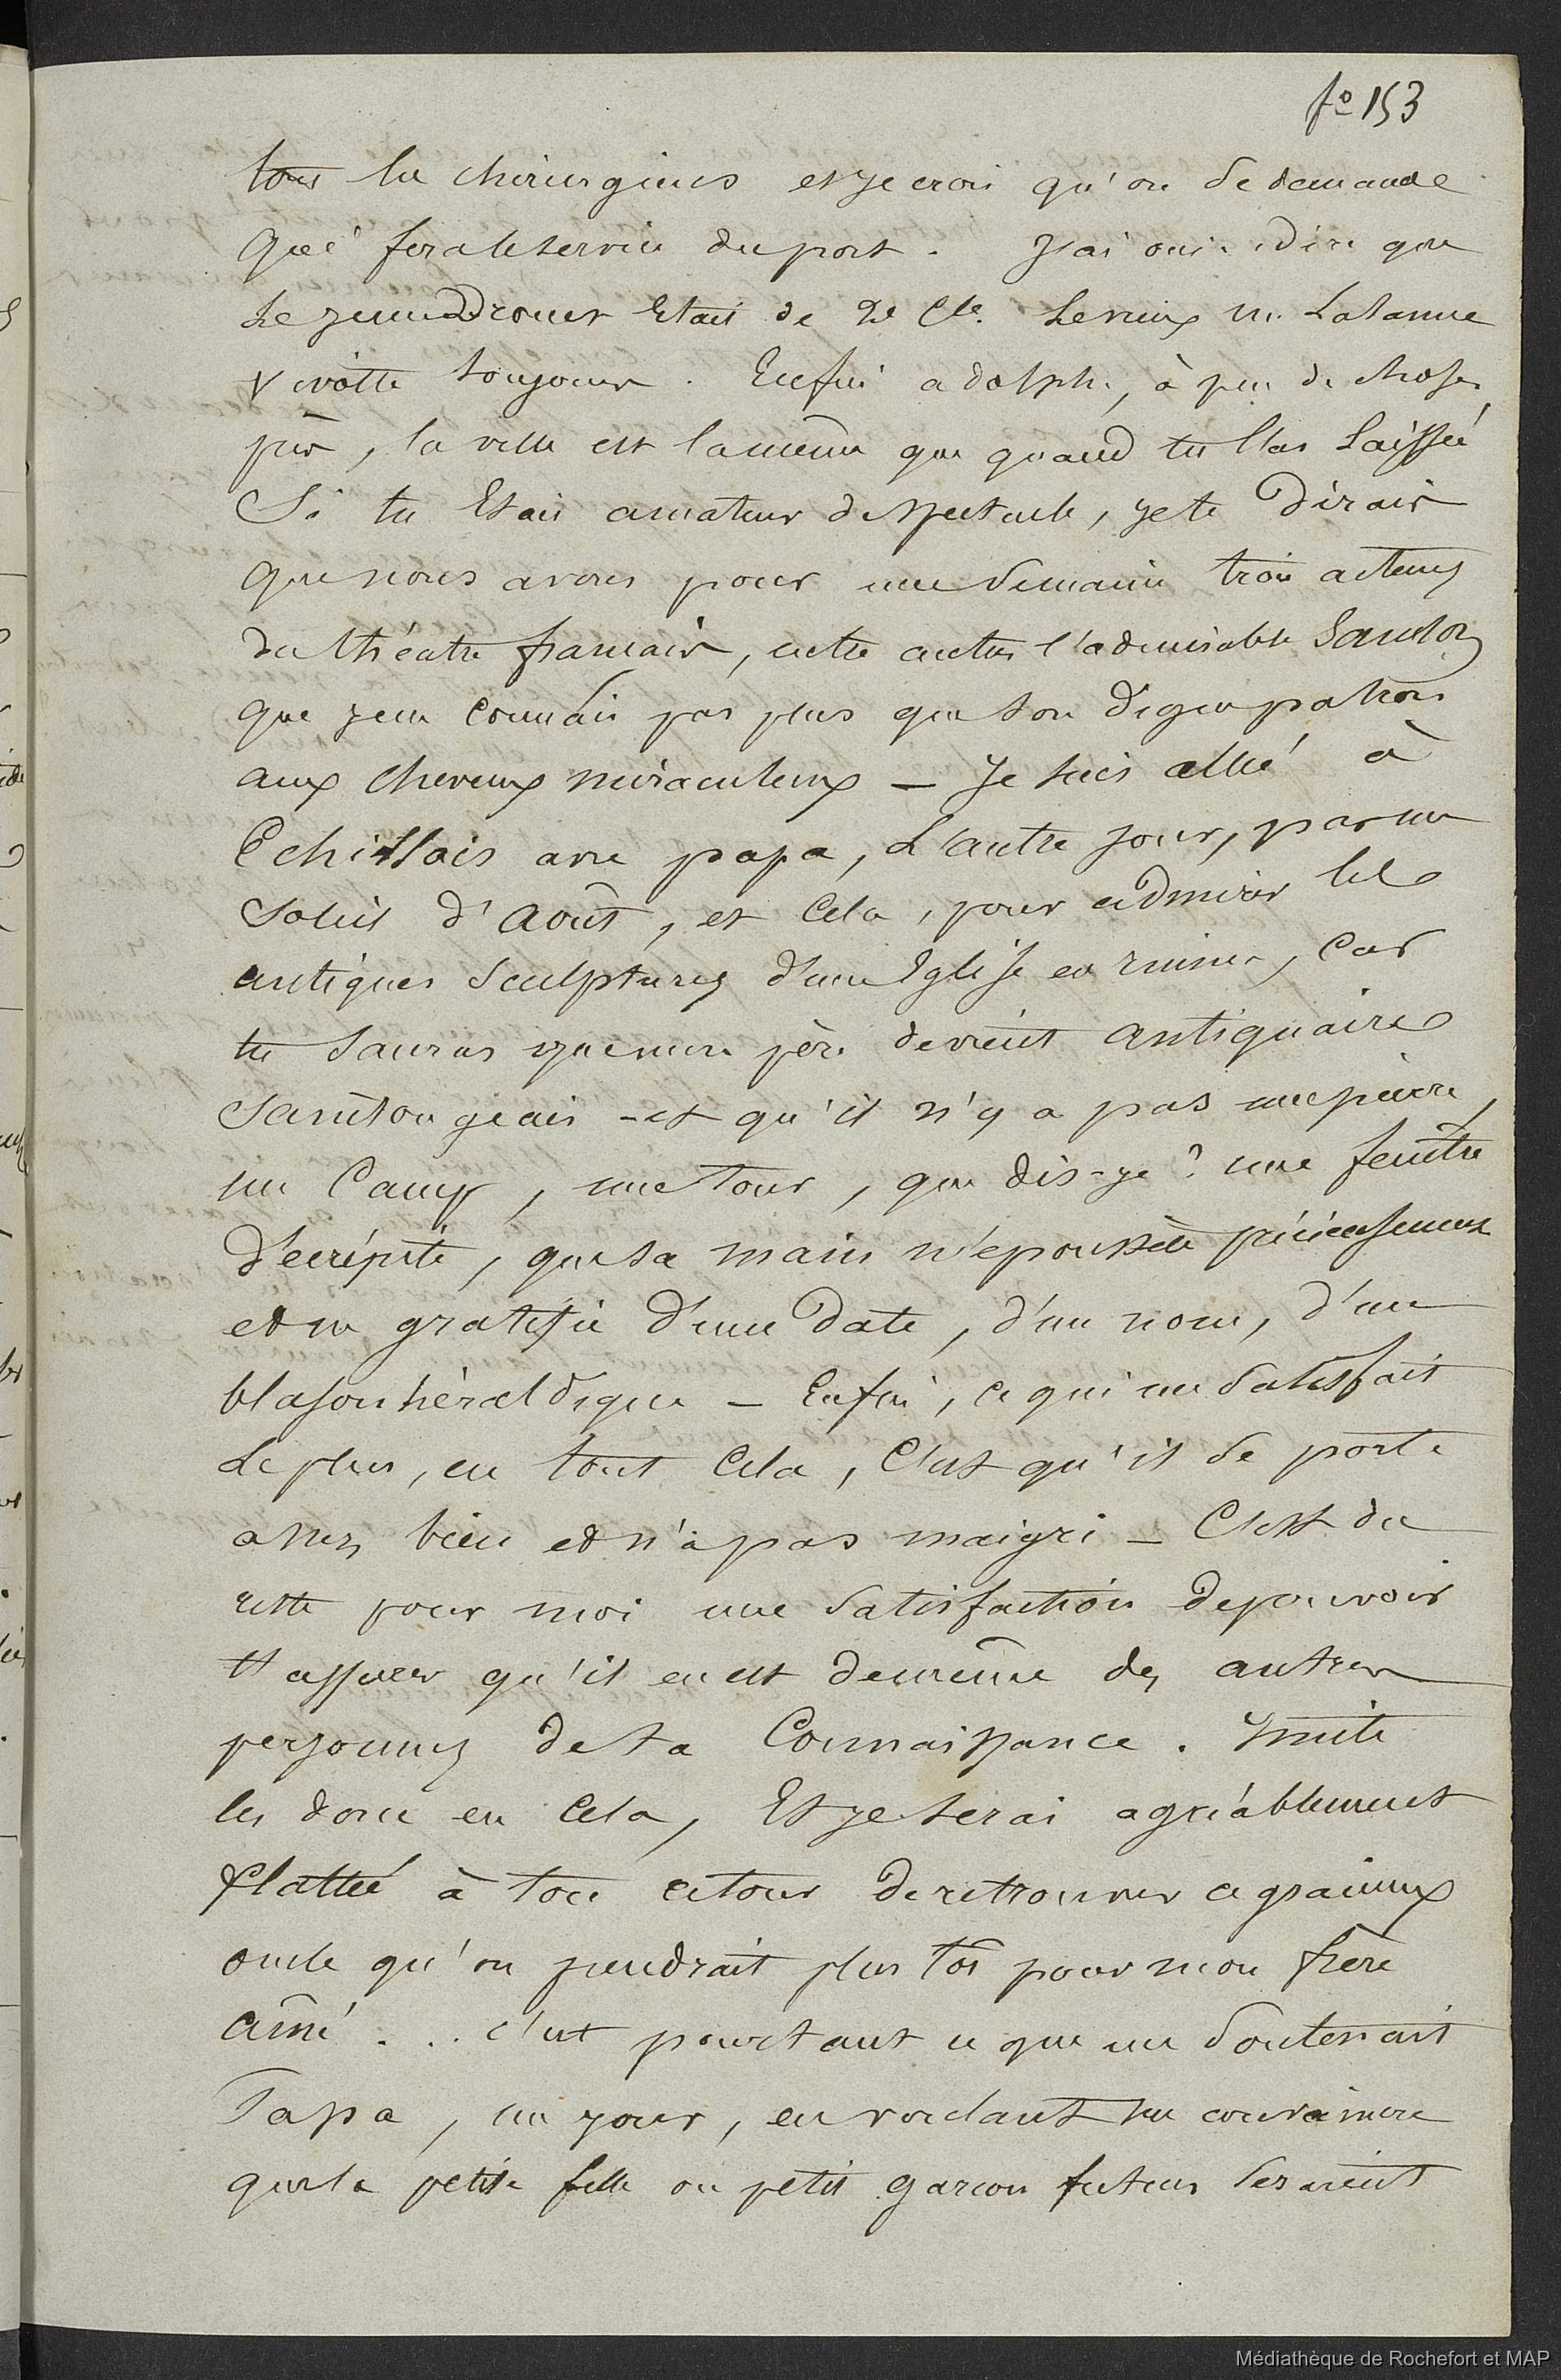 fo 153
tous les chirurgiens et je crois qu'on se demande
qui fera le service du port. J'ai oui dire que
le jeune Drouet Etait de 2e Cle. Le vieux M. Lalanne
vivotte toujours. Enfin adolphe, à peu de choses
près, la ville est la même que quand tu l'as laissée
Si tu Etais amateur de spectacle, je te Dirais
que nous avons pour une semaine trois acteurs
du théatre francais, entre autres l'admirable Samson
que je ne connais pas plus que son digne patron
aux cheveux miraculeux — Je suis allé à
Echillais avec papa, L'autre jour, par un
soleil d'Août, et Cela, pour admirer les
antiques sculptures d'une Eglise en ruines, Car
tu sauras que mon père devient antiquaire
saintongeais - et qu'il n'y a pas une pierre,
un Camp, une tour, que dis-je ? une fenêtre
décrépite, que sa main n'époussète précieusement
et ne gratifie d'une Date, d'un nom, d'un
blason héraldique — Enfin, ce qui me satisfait
Le plus, en tout Cela, C'est qu'il se porte
assez bien et n'a pas maigri — C'est du
reste pour moi une satisfaction de pouvoir
t'assurer qu'il en est de même des autres
personnes de ta Connaissance. Imite
les donc en Cela, Et je serai agréablement
flattée à ton retour de retrouver ce gracieux
oncle qu'on prendrait plus tôt pour mon frère
aîné . . c'est pourtant ce que me soutenait
Papa, un jour, en voulant me convaincre
que la petite fille ou petit garcon futurs seraient
Médiathèque de Rochefort et MAP